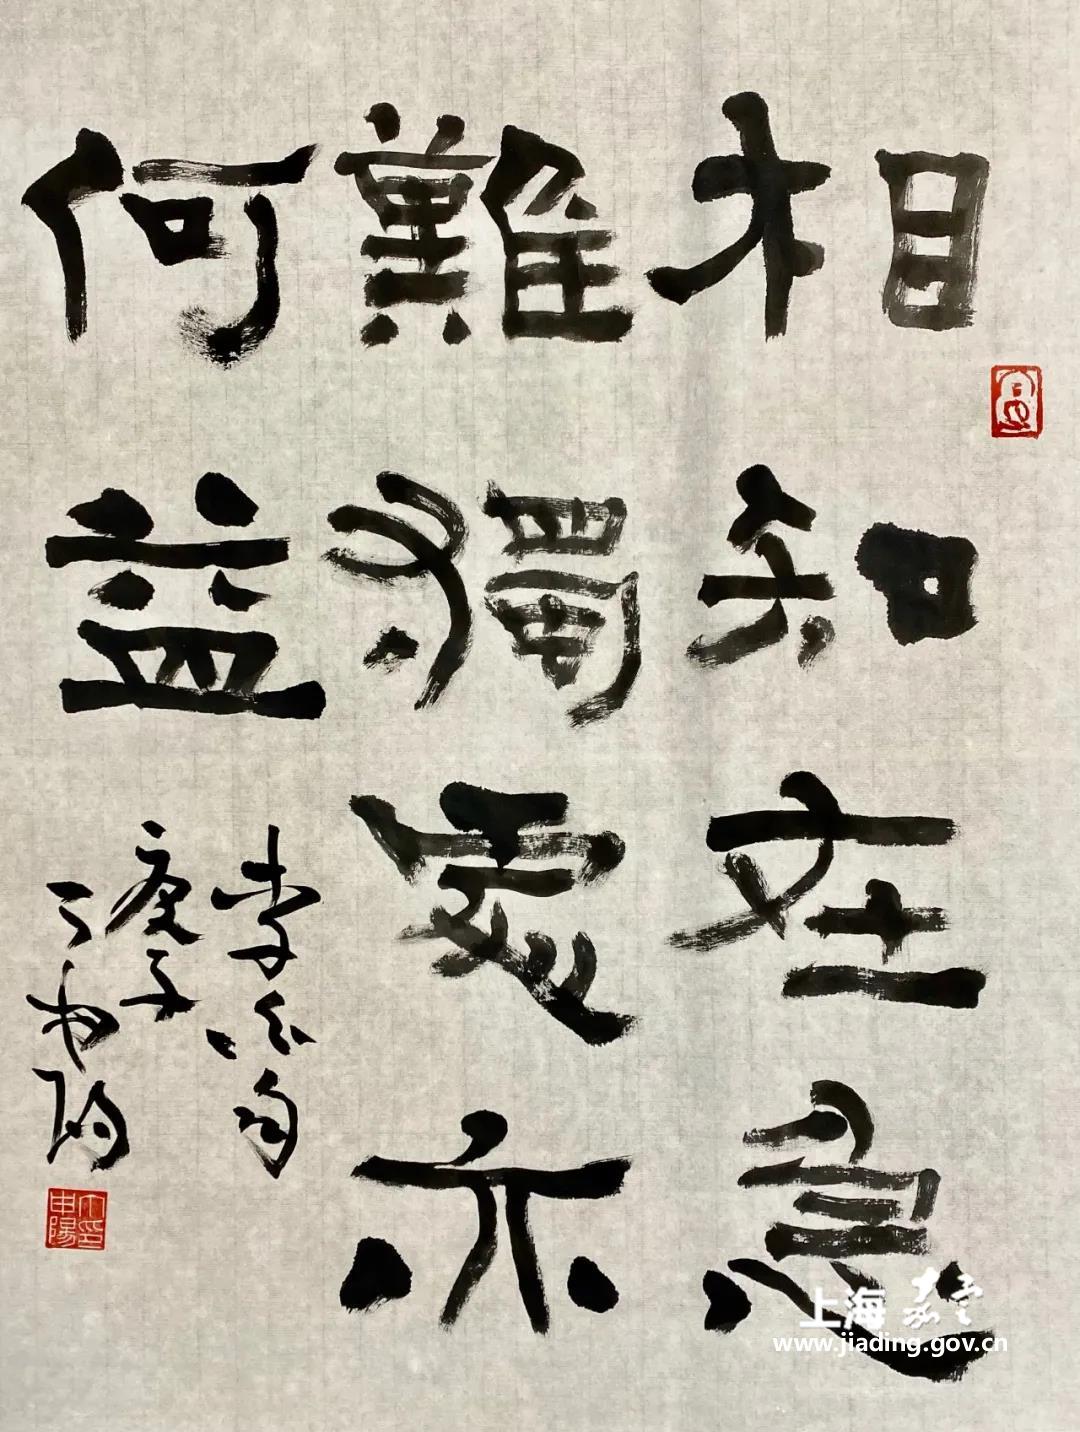 相知在急
難獨處亦
何益
李白句
庚子
丁申陽
丁印申陽
上海 嘉定
www.jiading.gov.cn